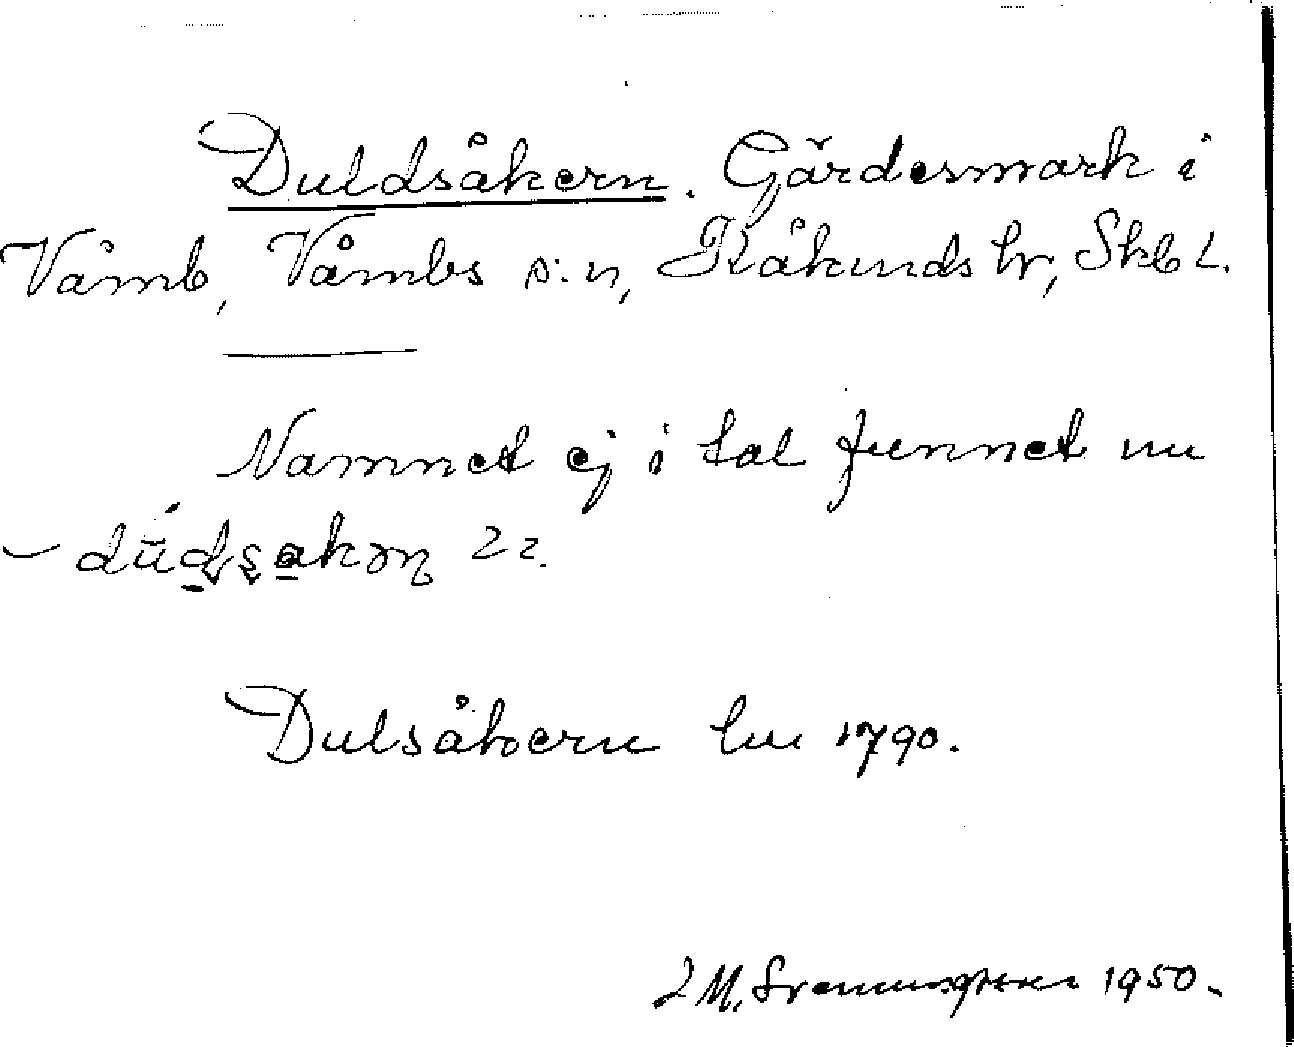 Duldsåkern. Gärdesmark i
Våmb, Våmbs s:n, Kåkinds hr, Skb l.
Namnet ej i tal funnet nu
Dulsåkern lm 1790.
J M. Svenningsson 1950.